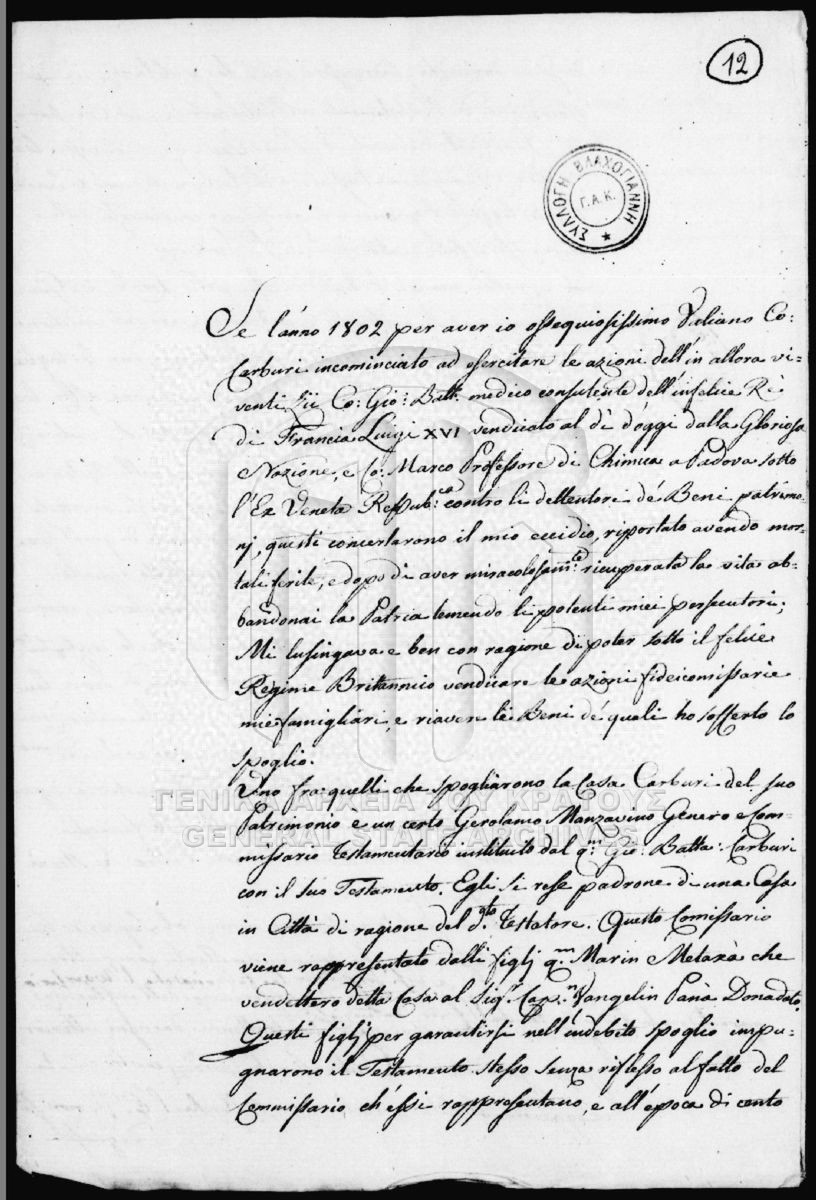 12
ΣΥΛΛΟΓΗ ΒΛΑΧΟΓΙΑΝΝΗ
Γ.Α.Κ.
Se l'anno 1802 per aver io ossequiosissimo Giuliano Co:
Carburi incominciato ad esercitare le azioni dell'in allora vi-
venti Zii Co: Gio: Batt: medico consulente dell'infelice Rè
di Francia Luigi XVI vendicato al dì d'oggi dalla Gloriosa
Nazione, e Co: Marco Professore di Chimica a Padova sotto
l'Ex Veneta Repub:ca contro li dettentori de' Beni patrimo-
nj, questi concertarono il mio eccidio, riportato avendo mor-
tali ferite, e dopo di aver miracolosam:te ricuperata la vita ab-
bandonai la Patria temendo li potenti miei persecutori;
Mi lusingava e ben con ragione di poter sotto il felice
Regime Britannico vendicare le azioni fideicomissarie
mie famigliari, e riavere li Beni de' quali ho sofferto lo
spoglio.
Uno fra quelli che spogliarono la Casa Carburi del suo
Patrimonio è un certo Gerolamo Manzavino Genero e Com-
missario Testamentario instituito dal q:m Gio: Batta: Carburi
con il suo Testamento. Egli si rese padrone di una Casa
in Città di ragione del d:to Testatore. Questo Comissario
viene rappresentato dalli figlj q:m Marin Metaxà che
vendettero detta Casa al Sig:r Cap:n Vangelin Panà Donadato.
Questi figlj per garantirsi nell'indebito spoglio impu-
gnarono il Testamento stesso senza riflesso al fatto del
Commissario ch'essi rappresentano, e all'epoca di cento
ΓΕΝΙΚΑ ΑΡΧΕΙΑ ΤΟΥ ΚΡΑΤΟΥΣ
GENERAL STATE ARCHIVES